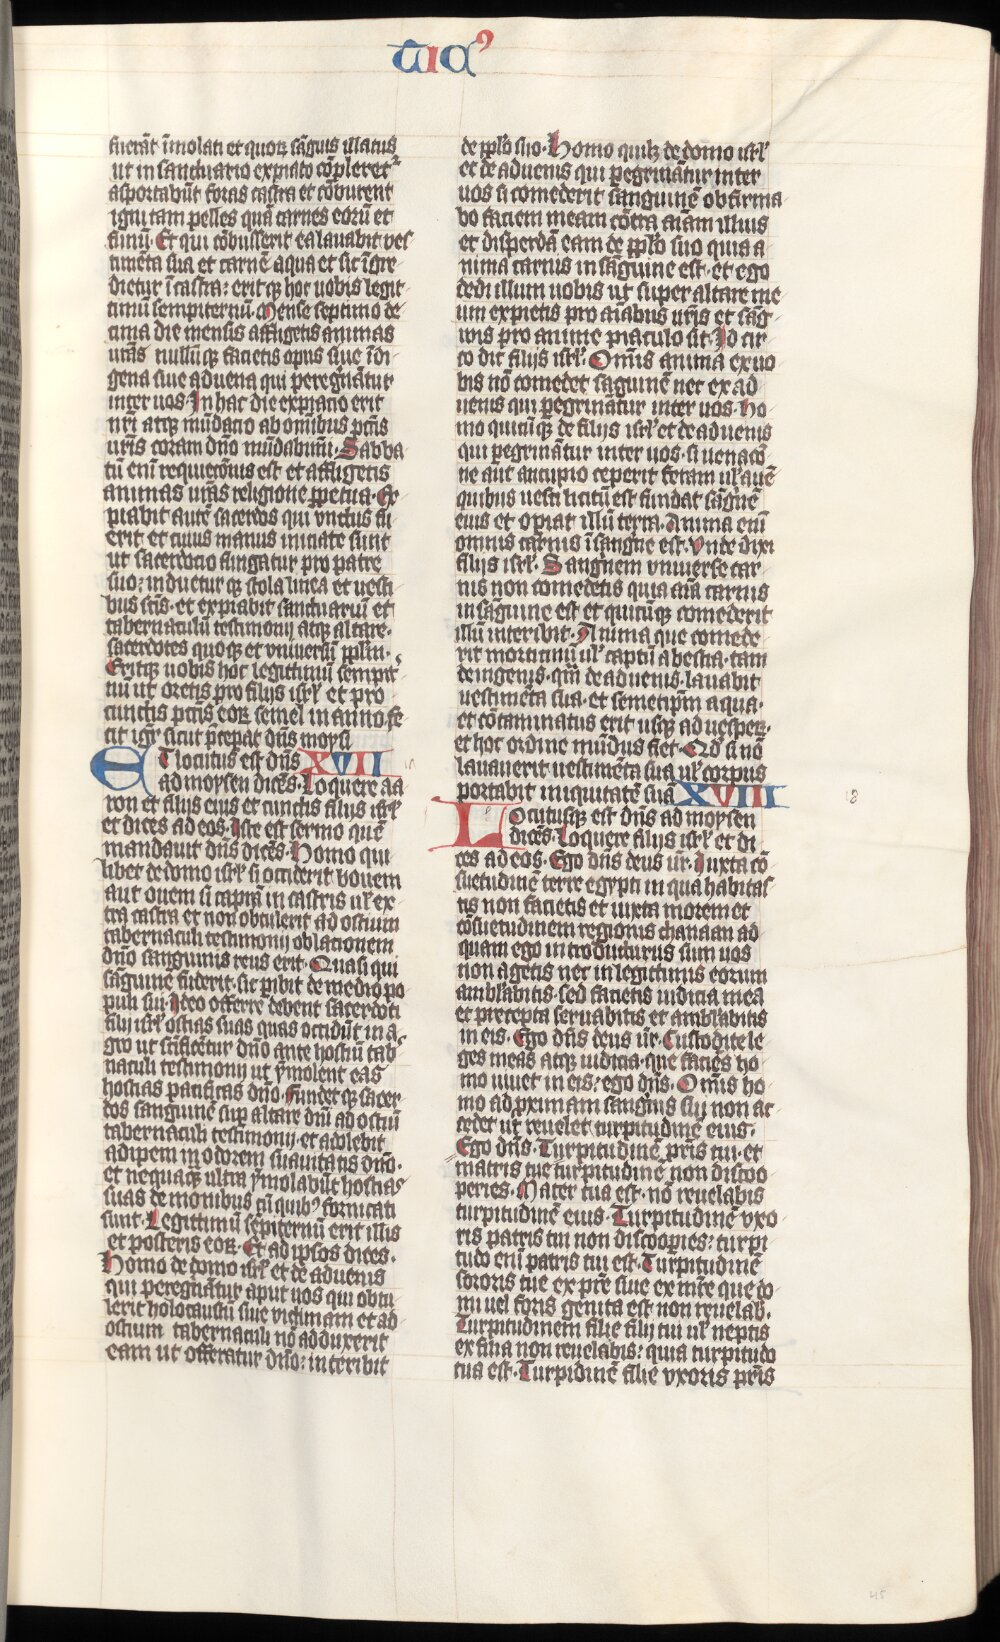 tica᷒
fuerāt īmolati et quoꝝ sāguis illatus
ut in sanctuario expiatio cōpleret᷑
asportabūt foras castra et cōburent
igni tam pelles quā carnes eorū et
fimū. Et qui cōbusserit ea lauabit ves
timēta sua et carnē aqua et sic īgre
dietur ī castra: eritqꝫ hoc uobis legit
timū sempiternū. Mense septimo de
cima die mensis affligetis animas
urās nullūqꝫ facietis opus siue īdi
gena siue aduena qui peregrīatur
inter uos. In hac die expiatio erit
nrī atqꝫ mūdatio ab omībus pctīs
urīs coram dn̄o mūdabimī. Sabba
tū enī requietōnis est et affligetis
animas urās religione ꝑpetua. Ex
piabit autē sacerdos qui vnctus fu
erit et cuius manus iniciate sunt
ut sacerdocio fungatur pro patre
suo: induetur qꝫ stola linea et uesti
bus scīs. et expiabit sanctuariū et
tabernaculū testimonij atqꝫ altare.
sacerdotes quoqꝫ et vniuersū pplm̄.
Eritqꝫ uobis hoc legittimū sempit
nū ut oretis pro filijs isrl̄ et pro
cunctis pctīs eoꝝ semel in anno. fe
cit igr̄ sicut p̄cepat dn̄s moysi
Et locutus est dn̄s XVII
ad moysen dicēs. Loquere aa
ron et filijs eius et cunctis filijs isrl̄
et dices ad eos. Iste est sermo quē
mandauit dn̄s dicēs. Homo qui
liber de domo isrl̄ si occiderit bouem
aut ouem si caprā in castris ul̄ ex
tra castra et non obtulerit ad ostium
tabernaculi testimonij oblationem
dn̄o sanguinis reus erit. Quasi qui
sāguinē fuderit. sic ꝑibit de medio po
puli sui. Ideo offerre debent sacerdoti
filij isrl̄ ostias suas quas occidūt in a
gro ut scīficētur dn̄o ante hostiū tab
naculi testimonij ut ymolent eas
hostias pacificas dn̄o. Fundet qꝫ sacer
dos sanguinē sup altare dn̄i ad ostiū
tabernaculi testimonij. et adolebit
adipem in odorem suauitatis dn̄o.
et nequaqꝫ ultra ymolabūt hostias
suas demonibus cū quibꝰ fornicati
sunt. Legittimū sēpiternū erit illis
et posteris eoꝝ. Et ad ipsos dices.
Homo de domo isrl̄ et de aduenis
qui peregrīatur aput uos qui obtu
lerit holocaustū siue victimam et ad
ostium tabernaculi nō adduxerit
eam ut offeratur dn̄o: interibit
de pplo suo. Homo quilꝫ de domo isrl̄
et de aduenis qui ꝑegrināntur inter
uos si comederit sanguinē obfirma
bo faciem meam cōtra aīam illius
et disperdā eam de pplo suo quia a
nima carnis in sāguine est. et ego
dedi illum uobis ut super altare me
um expietis pro aīabus urīs et sāg
uis pro anime piaculo sit. Id cir
co dixi filijs isrl̄. Omīs anima ex uo
bis nō comedet saguinē nec ex ad
uenis qui ꝑegrinātur inter uos. Ho
mo quicūqꝫ de filijs isrl̄ et de aduenis
qui ꝑegrinātur inter uos. si uenacō
ne aut aucupio ceperit feram ul̄ auē
quibus uesci licitū est fundat sāgnē
eius et oꝑiat illū terra. Anima enī
omnis carnis ī sangnē est. Vnde dixi
filijs isrl̄. Sangnem vniuerse car
nis non comedetis quia aīa carnis
in sāguine est et quicūqꝫ comederit
illū interibit. Anima que comede
rit morticinū ul̄ captū a bestia. tam
de ingenis. qm̄ de aduenis. lauabit
uestimēta sua. et semetipm̄ aqua.
et cōtaminatus erit usqꝫ ad uesꝑeꝝ.
et hoc ordine mūdus fiet. Qd̄ si nō
lauauerit uestimēta sua ul̄ corpus
portabit iniquitatē suā XVIII
Locutusqꝫ est dn̄s ad moysen 18
dicēs. Loquere filijs isrl̄ et di
ces ad eos. Ego dn̄s deus ur̄. Iuxta cō
suetudinē terre egypti in qua habitas
tis non facietis et iuxta morem et
cōsuetudinem regionis chanaan ad
quam ego introducturus sum uos
non agetis nec in legittimis eorum
ambl̄abitis. sed facietis iudicia mea
et precepta seruabitis et ambl̄abitis
in eis. Ego dn̄s deus ur̄. Custodite le
ges meas atqꝫ iudicia. que faciēs ho
mo uiuet in eis: ego dn̄s. Omīs ho
mo ad ꝓximam sanguīs sui non ac
cedet ut reuelet turpitudinē eius.
Ego dn̄s. Turpitudinē prīs tui. et
matris tue turpitudinē non discoo
peries. Mater tua est. nō reuelabis
turpitudinē eius. Turpitudinē vxo
ris patris tui non discooꝑies: turpi
tudo enī patris tui est. Turpitudinē
sororis tue ex pr̄e siue ex mr̄e que do
mi uel foris genita est non reuelab.
Turpitudinem filie filij tui ul̄ neptis
ex filia non reuelabis: quia turpitudo
tua est. Turpidinē filie vxoris prīs
45